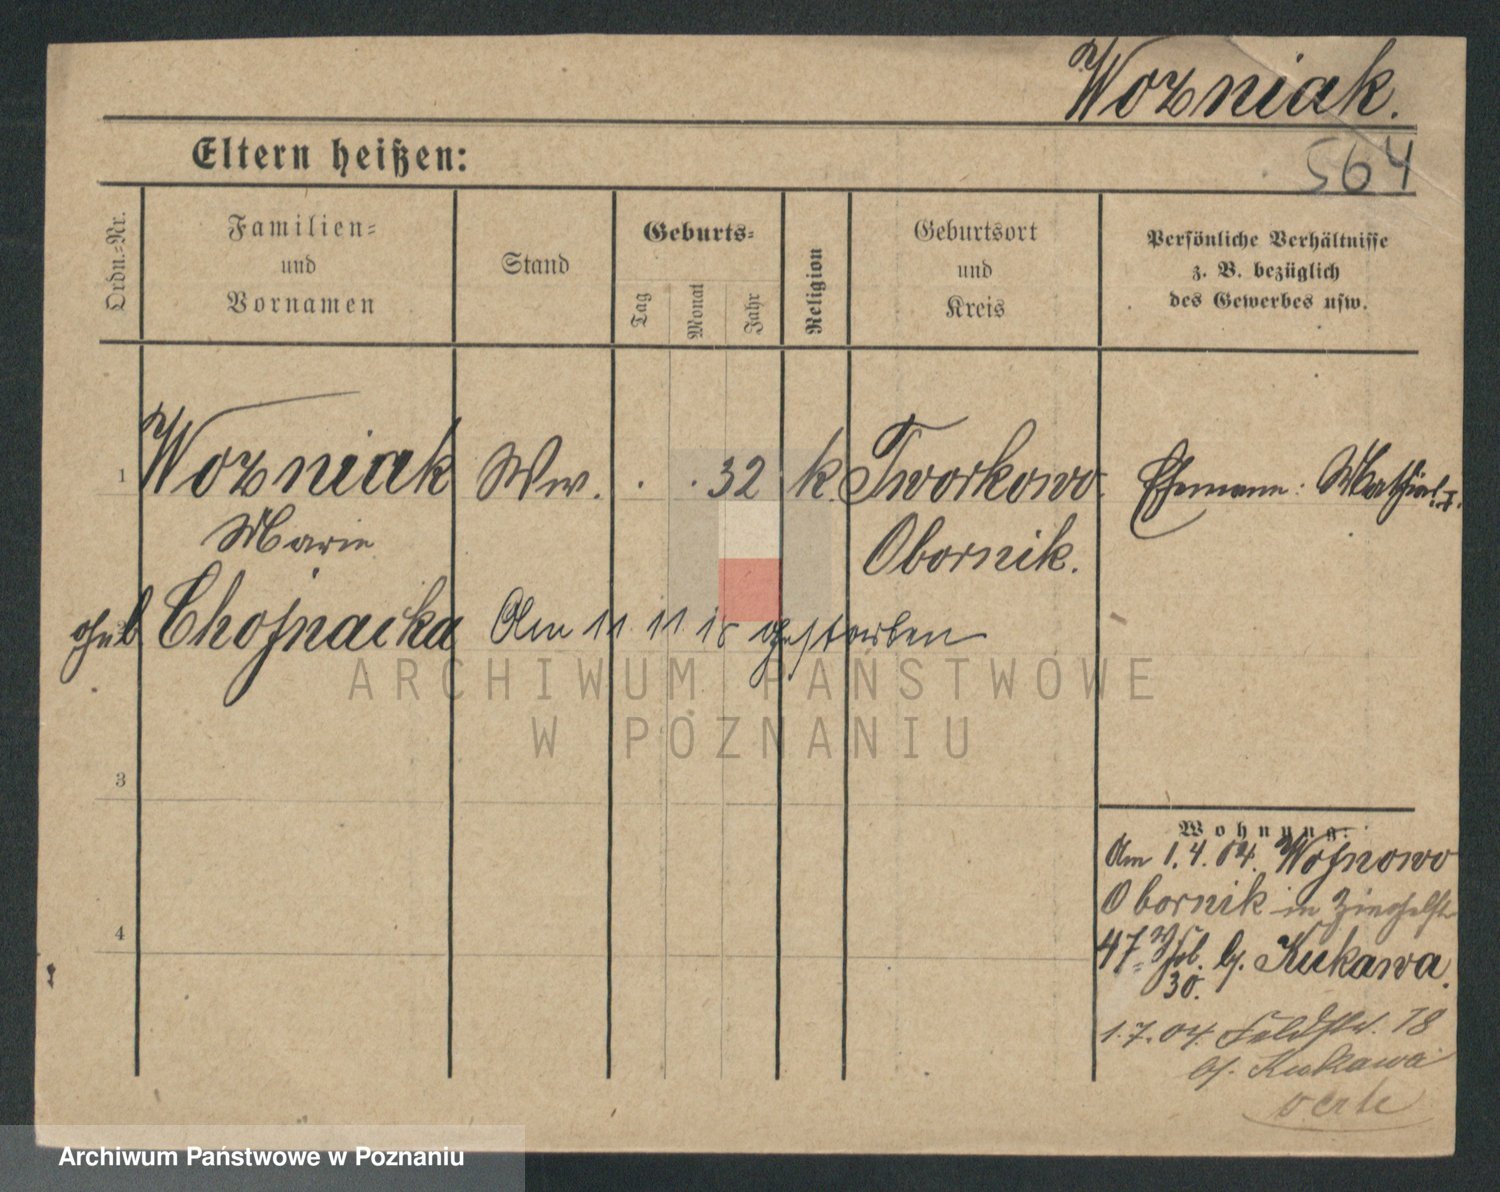 Wozniak.
564
Eltern heißen:
Ordn.-Nr.
Familien-
und
Vornamen
Stand
Geburts-
Tag
Monat
Jahr
Religion
Geburtsort
und
Kreis
Persönliche Verhältnisse
z. B. bezüglich
des Gewerbes usw.
1 Wozniak Ww. . . 32 k. Tworkowo. Ehemann:
Marie Obornik.
geb. Chojnacka Am 11 11 18 gestorben
ARCHIWUM PAŃSTWOWE
W POZNANIU
3
4
Wohnung:
Am 1.4.04. Wojnowo
Obornik in
47 b/. Kukawa.
30.
1.7.04. 78
b/. Kukawa
Archiwum Państwowe w Poznaniu